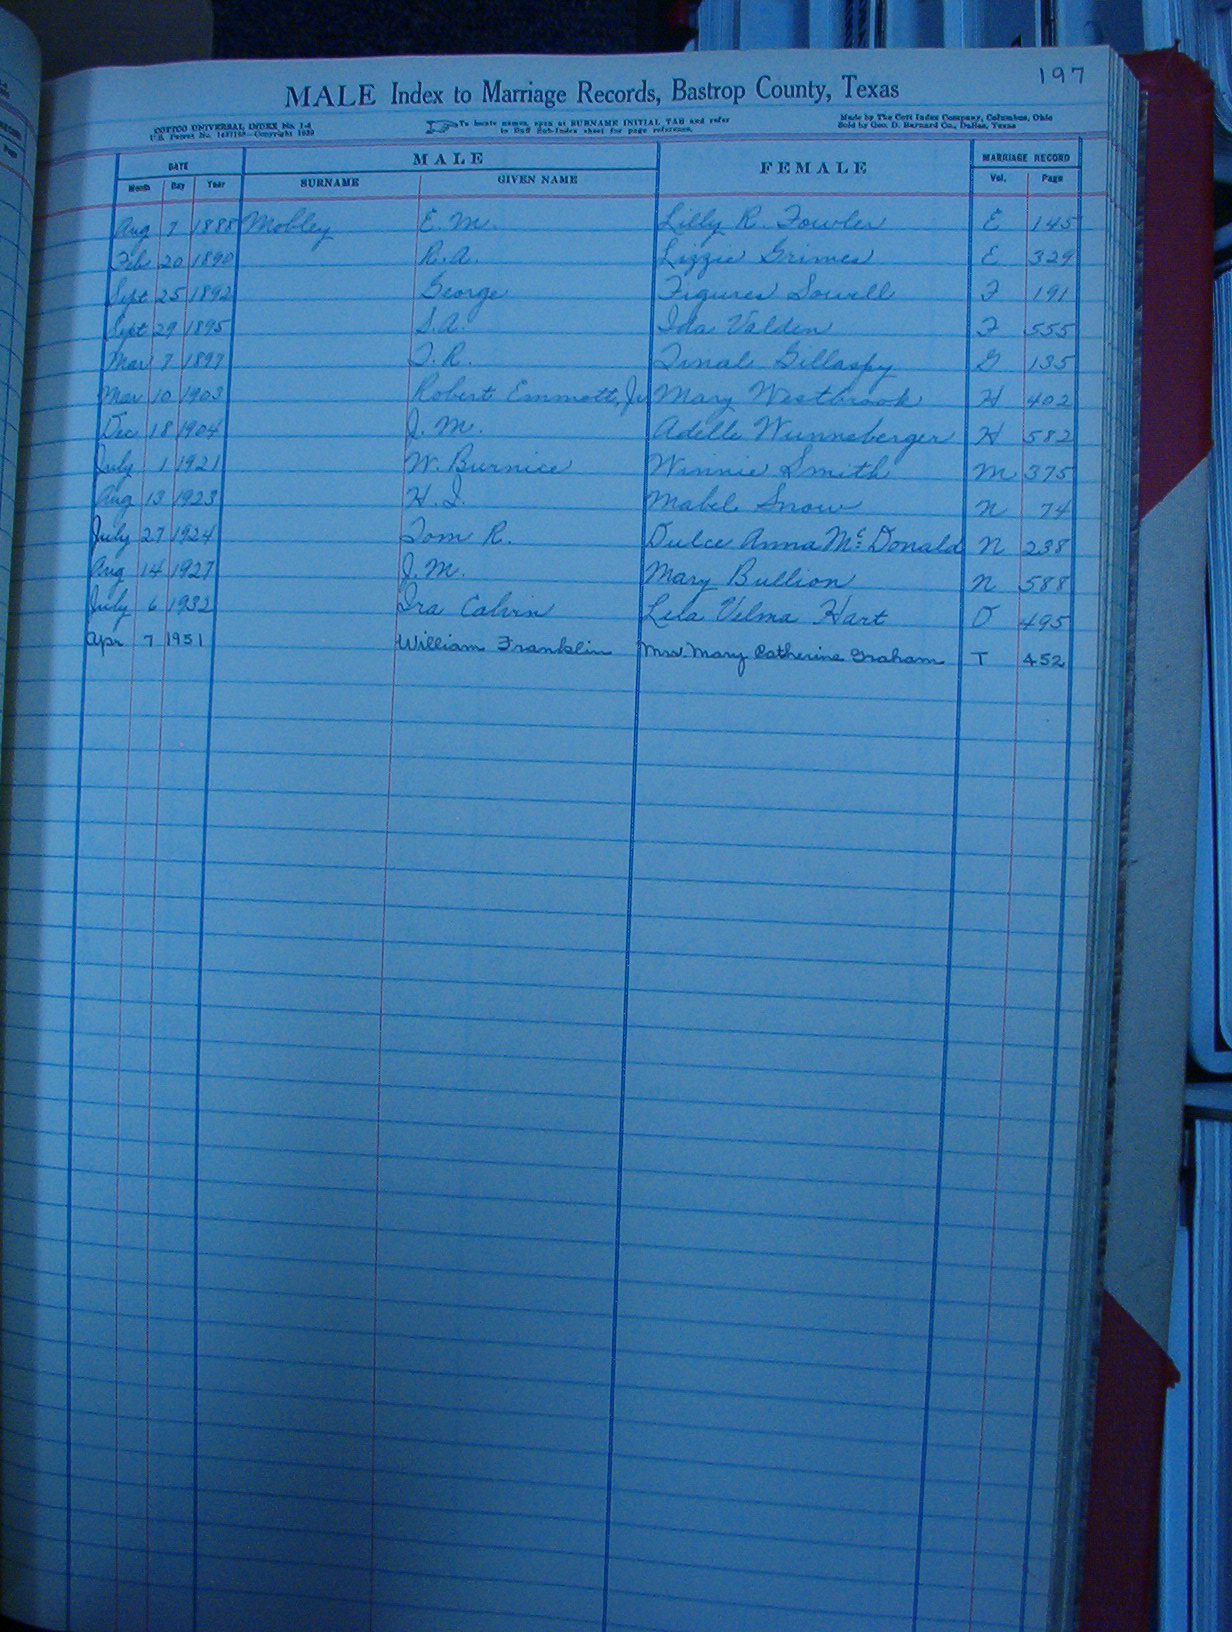 197
MALE Index to Marriage Records, Bastrop County, Texas
COTTCO UNIVERSAL INDEX No. 1-A
U.S. Patent No. 1497188—Copyright 1939
To locate names, open at SURNAME INITIAL TAB and refer
to Buff Sub-Index sheet for page reference.
Made by The Cott Index Company, Columbus, Ohio
Sold by Geo. D. Barnard Co., Dallas, Texas
DATE MALE FEMALE MARRIAGE RECORD
Month Day Year SURNAME GIVEN NAME Vol. Page
Aug 7 1888 Mobley E. M. Lilly R. Fowler E 145
Feb 20 1890 R. A. Lizzie Grimes E 329
Sept 25 1892 George Figures Sowell F 191
Sept 29 1895 S. A. Ida Valden F 555
Mar 7 1897 T. R. Tinal Gillaspy G 135
Mar 10 1903 Robert Emmott, Jr. Mary Westbrook H 402
Dec 18 1904 J. M. Adelle Wunneberger H 582
July 1 1921 W. Burnice Winnie Smith M 375
Aug 13 1923 H. I. Mabel Snow N 74
July 27 1924 Tom R. Dulce Anna Mc Donald N 238
Aug 14 1927 J. M. Mary Bullion N 588
July 6 1932 Ira Calvin Lela Velma Hart O 495
Apr 7 1951 William Franklin Mrs. Mary Catherine Graham T 452